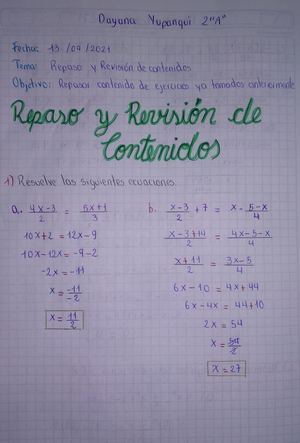 Dayana Yupanqui 2"A"
Fecha: 13/09/2021
Tema: Repaso y Revisión de contenidos
Objetivo: Repasar contenido de ejercicios ya tomados anteriormente
Repaso y Revisión de
Contenidos
1) Resuelve las siguientes ecuaciones.
a. (4x-3)/2 = (5x+1)/3
10x+2 = 12x-9
10x-12x = -9-2
-2x = -11
x = -11/-2
x = 11/2
b. (x-3)/2 + 7 = x - (5-x)/4
(x-3+14)/2 = (4x-5-x)/4
(x+11)/2 = (3x-5)/4
6x-10 = 4x+44
6x-4x = 44+10
2x = 54
x = 54/2
x = 27